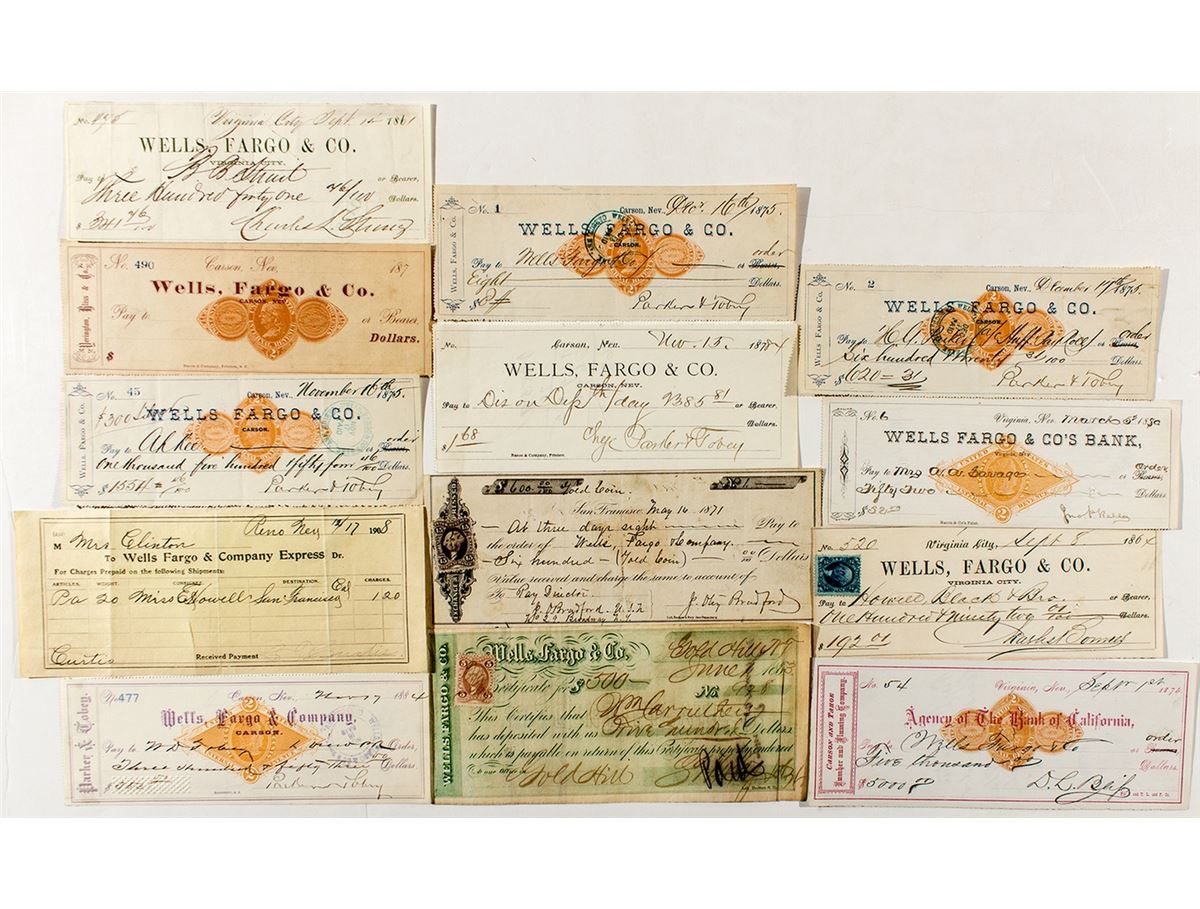 No. 498 Virginia City Sept 12 1861
WELLS, FARGO & CO.
VIRGINIA CITY.
Pay to B B Strait or Bearer,
Three Hundred forty one 76/100 Dollars.
$ 341 76/100 Charles L. Strong
Yerington, Bliss & Co.
No. 490 Carson, Nev. 187
Wells, Fargo & Co.
CARSON NEV.
Pay to or Bearer,
Dollars.
$
No. 45 Carson, Nev. November 16th 1875.
WELLS FARGO & CO.
CARSON.
Pay to Ah Kee or Bearer, order
One thousand five hundred fifty four 46/100 Dollars.
$1554 46/100 Parker & Tobey
Reno Nev 12/17 1908
M Mrs. Clinton
To Wells Fargo & Company Express Dr.
For Charges Prepaid on the following Shipments:
ARTICLES. WEIGHT. CONSIGNEE. DESTINATION. CHARGES.
Pa 20 Miss E Howell San Francisco Cal 1 20
Curtis Received Payment
Parker & Tobey.
No. 477 Carson, Nev., Nov 17 1884
Wells, Fargo & Company.
CARSON.
Pay to W D Tobey Order,
Dollars.
$ Parker & Tobey
WELLS, FARGO & CO.
No. 1 Carson, Nev., Dec. 16th 1875.
WELLS FARGO & CO.
CARSON.
Pay to Wells Fargo & Co or Bearer, order
Eight Dollars.
$8 Parker & Tobey
No. Carson, Nev. Nov. 15. 1874
WELLS, FARGO & CO.
CARSON, NEV.
Pay to Dis on Dfts 1 day 3385 81 or Bearer.
Dollars.
$1.68 Chge Parker & Tobey
EXCHANGE
$600 00/100 Gold Coin. No. 1
San Francisco May 14 1871
At three days sight Pay to
the order of Wells, Fargo & Company.
Six hundred (Gold Coin) 00/00 Dollars
Value received and charge the same to account of
To Pay Director
J. O. Bradford. U.S.N. J. Otis Bradford
No 29 Broadway N.Y.
WELLS FARGO & CO.
Wells, Fargo & Co. Gold Hill N.T.
June 1 1863
Certificate for $500 No. 938
This Certifies that Wm Carruthers
has deposited with us Five hundred Dollars
which is payable on return of this Certificate properly endorsed
Gold Hill Paid
WELLS FARGO & CO.
No. 2 Carson, Nev., December 17th 1875.
WELLS FARGO & CO.
CARSON.
Pay to or Bearer, order
Six hundred & twenty 31/100 Dollars.
$620-31 Parker & Tobey
No. 6 Virginia, Nev. March 5th 1880
WELLS FARGO & CO'S BANK,
Virginia, Nev.
Pay to Mrs A. A. Savage or Bearer, Order
Fifty Two Dollars
$52 Jno. H. Kelly
No. 520 Virginia City, Sept 8 1864
WELLS, FARGO & CO.
VIRGINIA CITY.
Pay to Howell, Black & Bro. or Bearer
One Hundred & Ninety two 01/100 Dollars.
$192 01
CARSON AND TAHOE
Lumber and Fluming Company.
No. 54 Virginia, Nev., Sept 1st 187
Agency of The Bank of California,
Pay to Wells Fargo & Co or Bearer order
Five thousand Dollars
$5000 00 D. L. Bliss